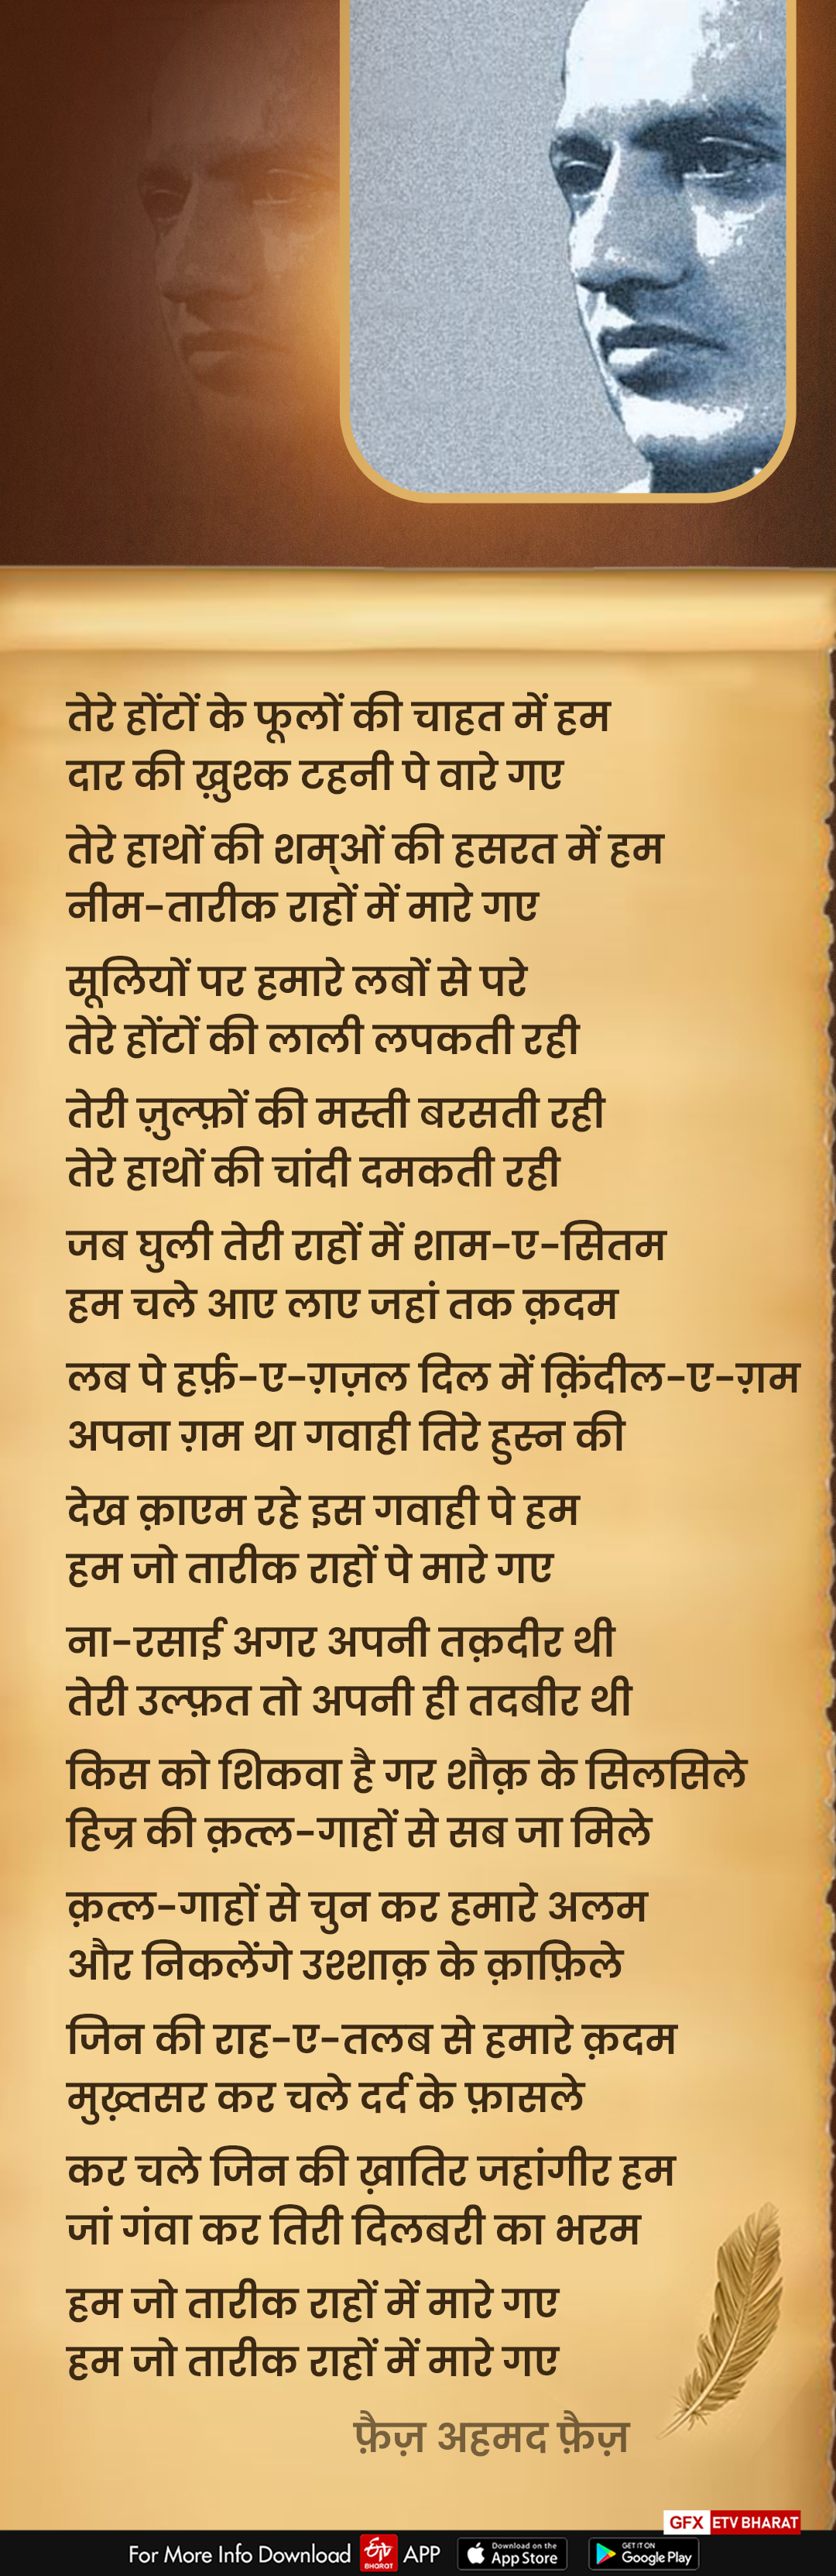 तेरे होंटों के फूलों की चाहत में हम
दार की ख़ुश्क टहनी पे वारे गए
तेरे हाथों की शम्ओं की हसरत में हम
नीम-तारीक राहों में मारे गए
सूलियों पर हमारे लबों से परे
तेरे होंटों की लाली लपकती रही
तेरी ज़ुल्फ़ों की मस्ती बरसती रही
तेरे हाथों की चांदी दमकती रही
जब घुली तेरी राहों में शाम-ए-सितम
हम चले आए लाए जहां तक क़दम
लब पे हर्फ़-ए-ग़ज़ल दिल में क़िंदील-ए-ग़म
अपना ग़म था गवाही तिरे हुस्न की
देख क़ाएम रहे इस गवाही पे हम
हम जो तारीक राहों पे मारे गए
ना-रसाई अगर अपनी तक़दीर थी
तेरी उल्फ़त तो अपनी ही तदबीर थी
किस को शिकवा है गर शौक़ के सिलसिले
हिज्र की क़त्ल-गाहों से सब जा मिले
क़त्ल-गाहों से चुन कर हमारे अलम
और निकलेंगे उश्शाक़ के क़ाफ़िले
जिन की राह-ए-तलब से हमारे क़दम
मुख़्तसर कर चले दर्द के फ़ासले
कर चले जिन की ख़ातिर जहांगीर हम
जां गंवा कर तिरी दिलबरी का भरम
हम जो तारीक राहों में मारे गए
हम जो तारीक राहों में मारे गए
फ़ैज़ अहमद फ़ैज़
GFX ETV BHARAT
For More Info Download ETV BHARAT APP Download on the App Store GET IT ON Google Play